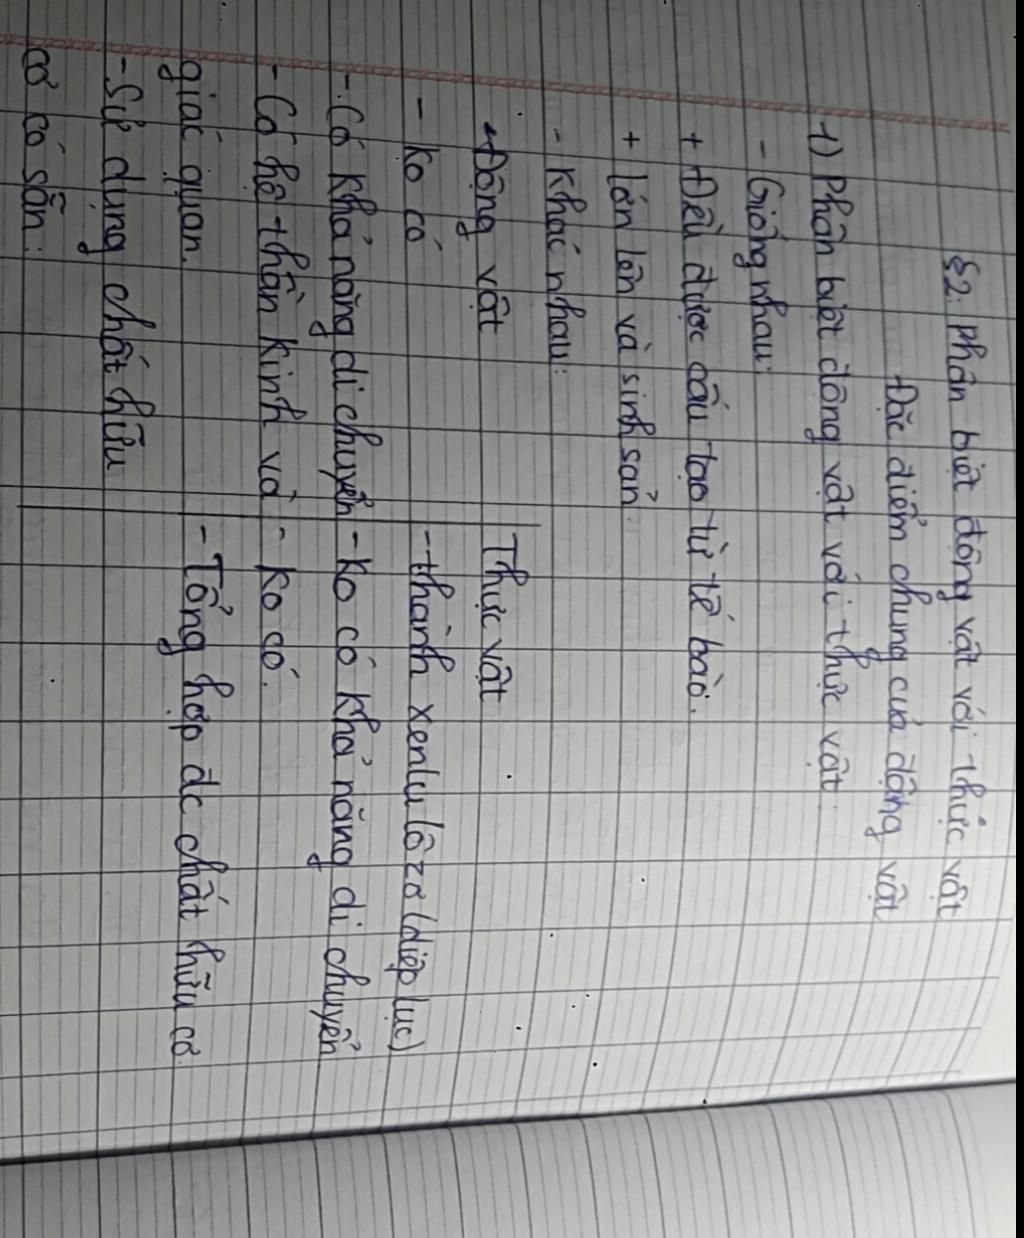 §2: Phân biệt động vật với thực vật
Đặc điểm chung của động vật
1) Phân biệt động vật với thực vật.
- Giống nhau:
+ Đều được cấu tạo từ tế bào.
+ lớn lên và sinh sản.
- Khác nhau:
Động vật Thực vật
- ko có - thành xenlulôzơ (diệp lục)
- Có khả năng di chuyển - ko có khả năng di chuyển
- Có hệ thần kinh và - ko có.
giác quan. - Tổng hợp đc chất hữu cơ.
- Sử dụng chất hữu
cơ có sẵn: